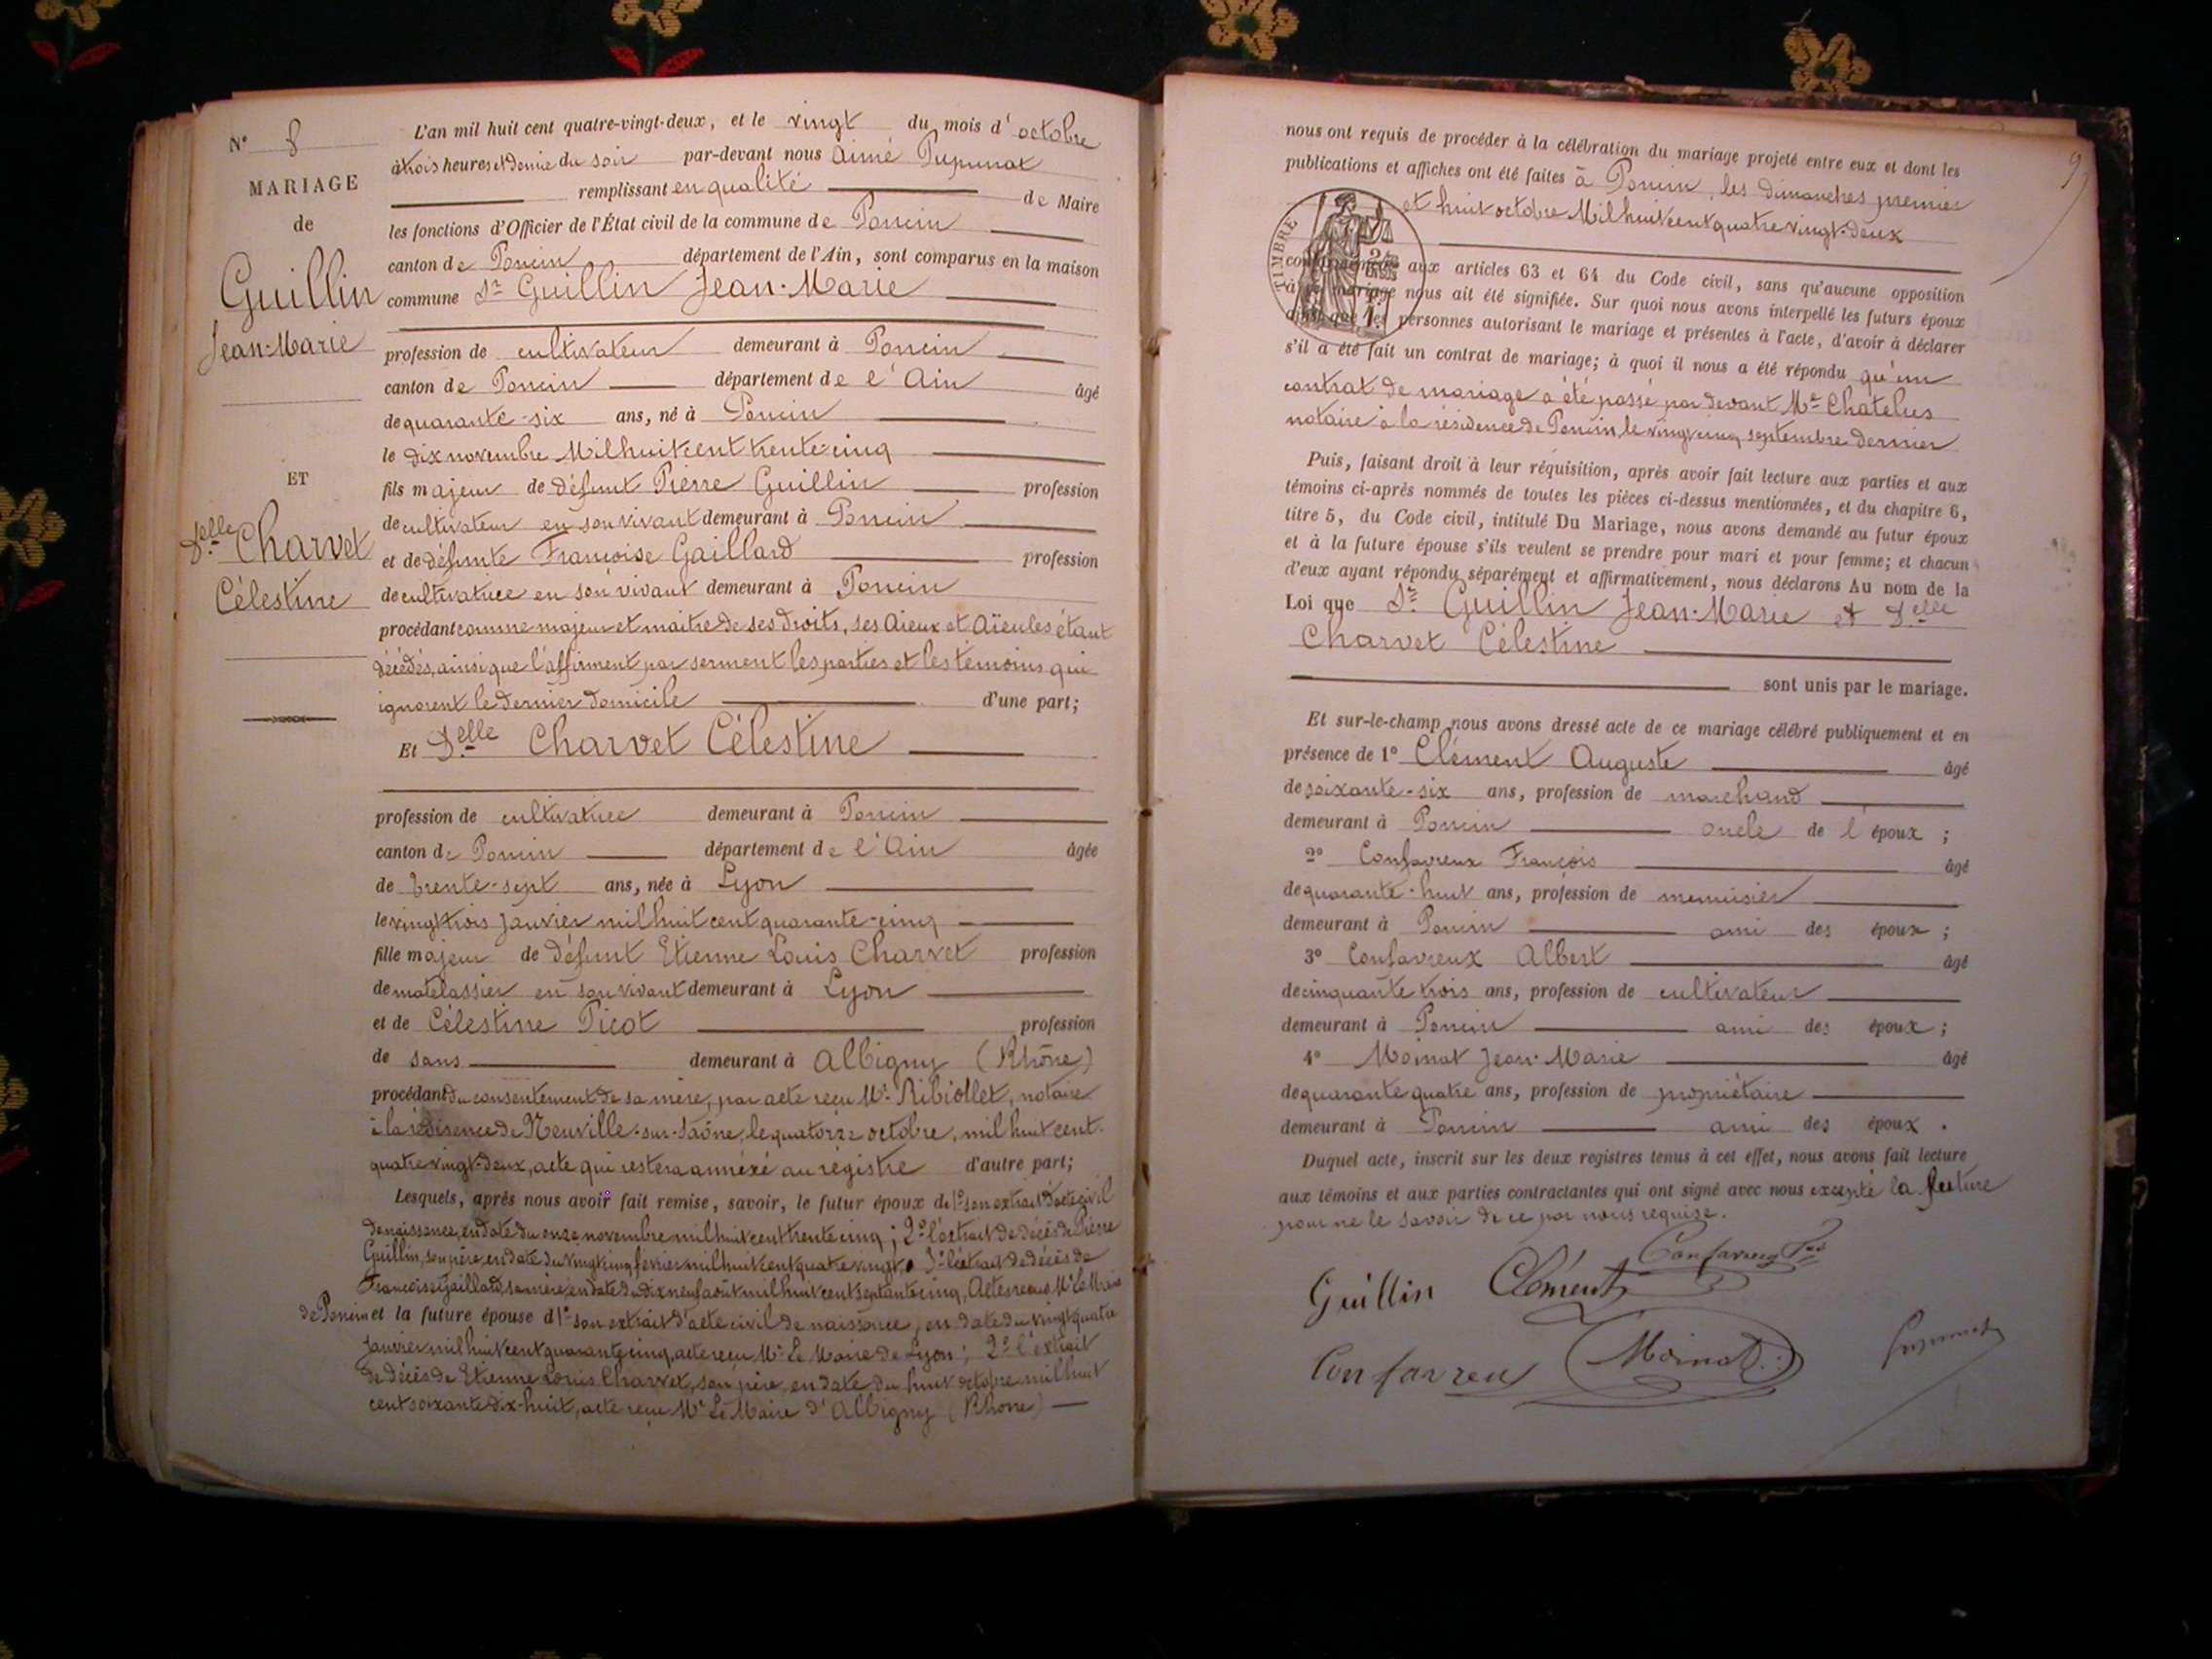 N° 8
MARIAGE
de
Guillin
Jean-Marie
ET
Delle Charvet
Célestine
L'an mil huit cent quatre-vingt-deux, et le vingt du mois d'octobre
à trois heures et demie du soir par-devant nous Aimé
remplissant en qualité de Maire
les fonctions d'Officier de l'État civil de la commune de Poncin
canton de Poncin département de l'Ain, sont comparus en la maison
commune Sr Guillin Jean-Marie
profession de cultivateur demeurant à Poncin
canton de Poncin département de l'Ain âgé
de quarante-six ans, né à Poncin
le dix novembre Mil huit cent trente-cinq
fils majeur de défunt Pierre Guillin profession
de cultivateur en son vivant demeurant à Poncin
et de défunte Françoise Gaillard profession
de cultivatrice en son vivant demeurant à Poncin
procédant comme majeur et maître de ses droits, ses Aieux et Aïeules étant
décédés, ainsi que l'affirment par serment les parties et les témoins qui
ignorent le dernier domicile d'une part;
Et Delle Charvet Célestine
profession de cultivatrice demeurant à Poncin
canton de Poncin département de l'Ain âgée
de trente-sept ans, née à Lyon
le vingt trois Janvier mil huit cent quarante-cinq
fille majeur de défunt Etienne Louis Charvet profession
de matelassier en son vivant demeurant à Lyon
et de Célestine Picot profession
de sans demeurant à Albigny (Rhône)
procédant du consentement de sa mère, par acte reçu Me Ribiollet, notaire
à la résidence de Neuville-sur-Saône, le quatorze octobre, mil huit cent
quatre vingt-deux, acte qui restera annéxé au régistre d'autre part;
Lesquels, après nous avoir fait remise, savoir, le futur époux de 1° son extrait d'acte civil
de naissance, en date du onze novembre mil huit cent trente cinq; 2° l'extrait de décès de Pierre
Guillin, son père, en date du vingt cinq février mil huit cent quatre vingt. 3° l'extrait de décès de
Françoise Gaillard, sa mère, en date du dix neuf août mil huit cent septante cinq, Actes reçus Mr Le Maire
de Poncin et la future épouse d 1° son extrait d'acte civil de naissance, en date du vingt quatre
Janvier mil huit cent quarante cinq, acte reçu Mr Le Maire de Lyon; 2° l'extrait
de décès de Etienne Louis Charvet, son père, en date du huit octobre mil huit
cent soixante dix-huit, acte reçu Mr Le Maire d'Albigny (Rhône)
nous ont requis de procéder à la célébration du mariage projeté entre eux et dont les
publications et affiches ont été faites à Poncin, les dimanches premier
et huit octobre Mil huit cent quatre vingt-deux
TIMBRE
conformément aux articles 63 et 64 du Code civil, sans qu'aucune opposition
à ce mariage nous ait été signifiée. Sur quoi nous avons interpellé les futurs époux
ainsi que les personnes autorisant le mariage et présentes à l'acte, d'avoir à déclarer
s'il a été fait un contrat de mariage; à quoi il nous a été répondu qu'un
contrat de mariage a été passé par devant Me Chatelus
notaire à la résidence de Poncin, le vingt cinq septembre dernier
Puis, faisant droit à leur réquisition, après avoir fait lecture aux parties et aux
témoins ci-après nommés de toutes les pièces ci-dessus mentionnées, et du chapitre 6,
titre 5, du Code civil, intitulé Du Mariage, nous avons demandé au futur époux
et à la future épouse s'ils veulent se prendre pour mari et pour femme; et chacun
d'eux ayant répondu séparément et affirmativement, nous déclarons Au nom de la
Loi que Sr Guillin Jean-Marie et Delle
Charvet Célestine
sont unis par le mariage.
Et sur-le-champ nous avons dressé acte de ce mariage célébré publiquement et en
présence de 1° Clément Auguste âgé
de soixante-six ans, profession de marchand
demeurant à Poncin oncle de l'époux;
2° Confavreux François âgé
de quarante-huit ans, profession de menuisier
demeurant à Poncin ami des époux;
3° Confavreux Albert âgé
de cinquante trois ans, profession de cultivateur
demeurant à Poncin ami des époux;
4° Moinat Jean-Marie âgé
de quarante quatre ans, profession de propriétaire
demeurant à Poncin ami des époux.
Duquel acte, inscrit sur les deux registres tenus à cet effet, nous avons fait lecture
aux témoins et aux parties contractantes qui ont signé avec nous excepté la future
pour ne le savoir de ce par nous requise.
Guillin Clément
Confavreu Moinat